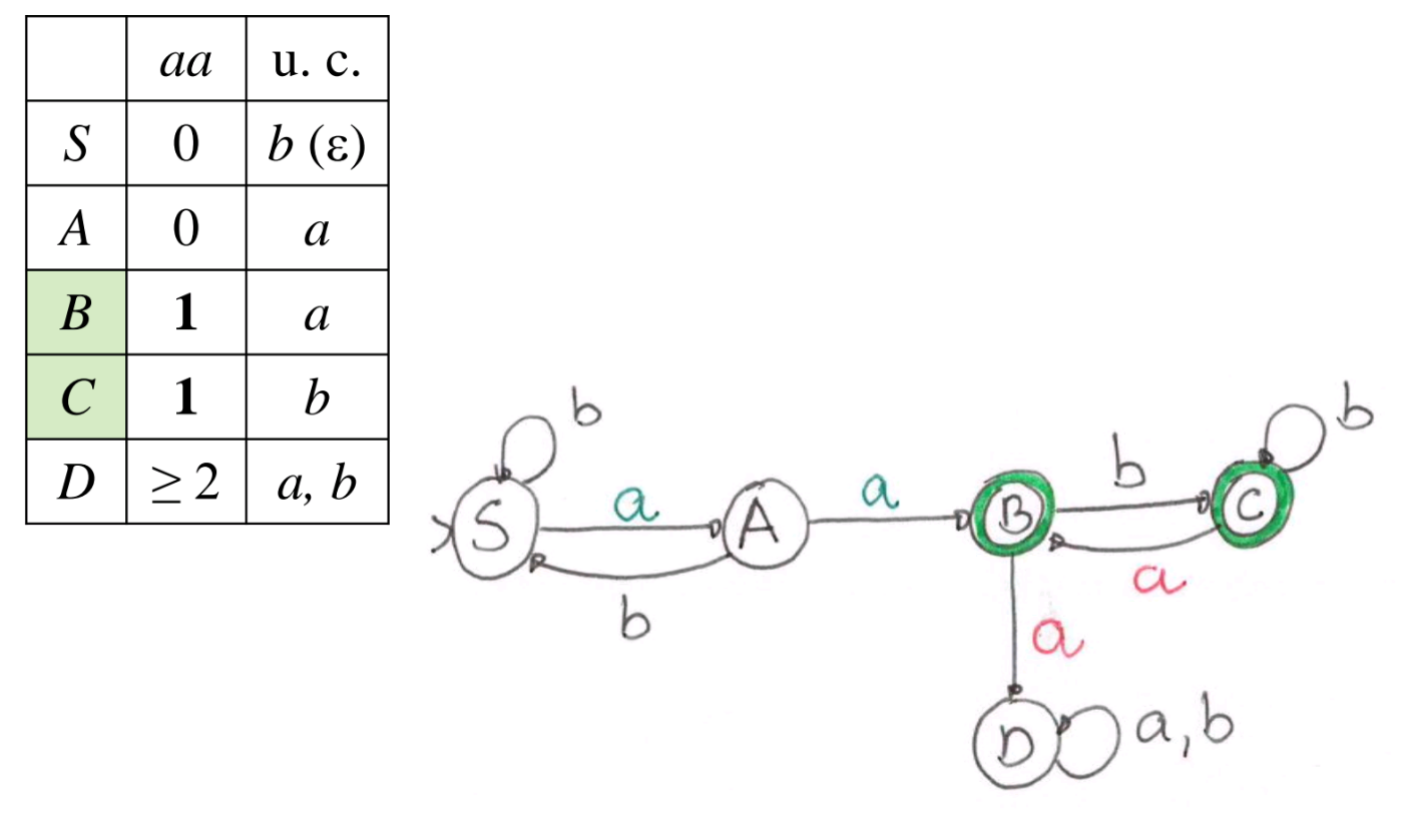 aa u. c.
S 0 b (ε)
A 0 a
B 1 a
C 1 b
D ≥ 2 a, b
b
b
S a A a B b C
a
b
a
D a, b